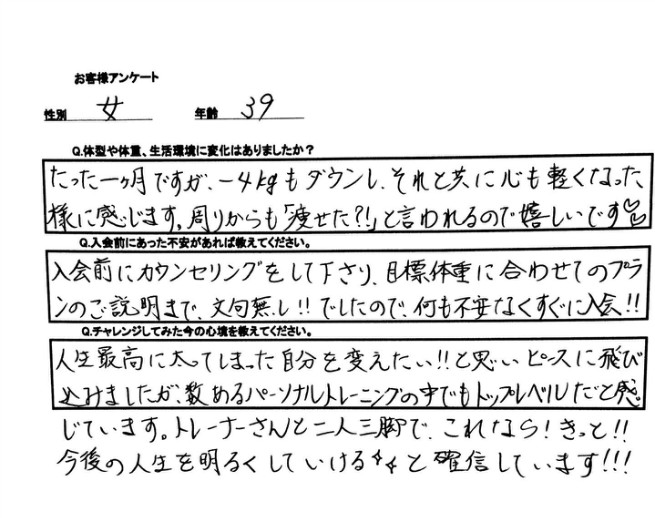 お客様アンケート
性別 女 年齢 39
Q.体型や体重、生活環境に変化はありましたか？
たった一ヶ月ですが、－4kgもダウンし、それと共に心も軽くなった
様に感じます。周りからも「痩せた?!」と言われるので嬉しいです♡
Q.入会前にあった不安があれば教えてください。
入会前にカウンセリングをして下さり、目標体重に合わせてのプラ
ンのご説明まで、文句無し!!でしたので、何も不安なくすぐに入会!!
Q.チャレンジしてみた今の心境を教えてください。
人生最高に太ってしまった自分を変えたい!!と思いピースに飛び
込みましたが、数あるパーソナルトレーニングの中でもトップレベルだと感
じています。トレーナーさんと二人三脚で、これなら！きっと!!
今後の人生を明るくしていける✧✧と確信しています!!!